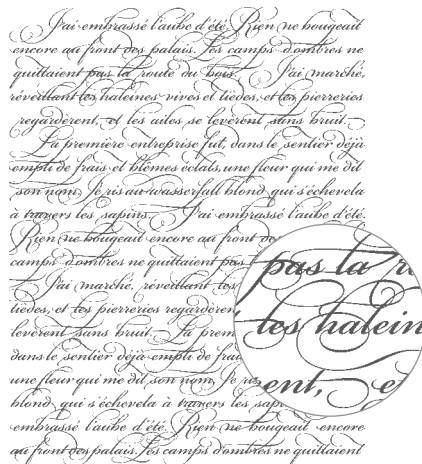 J'ai embrassé l'aube d'été. Rien ne bougeait
encore au front des palais. Les camps d'ombres ne
quittaient pas la route du bois. J'ai marché,
réveillant les haleines vives et tièdes, et les pierreries
regardèrent, et les ailes se levèrent sans bruit.
La première entreprise fut, dans le sentier déjà
empli de frais et blêmes éclats, une fleur qui me dit
son nom. Je ris au wasserfall blond qui s'échevela
à travers les sapins. J'ai embrassé l'aube d'été.
Rien ne bougeait encore au front de
camps d'ombres ne quittaient pas
J'ai marché, réveillant les
tièdes, et les pierreries regardèren
levèrent sans bruit. La prem
dans le sentier déjà empli de frai
une fleur qui me dit son nom. Je ri
blond qui s'échevela à travers les sapi
embrassé l'aube d'été. Rien ne bougeait encore
au front des palais. Les camps d'ombres ne quittaient
pas la r
les halein
ent, e